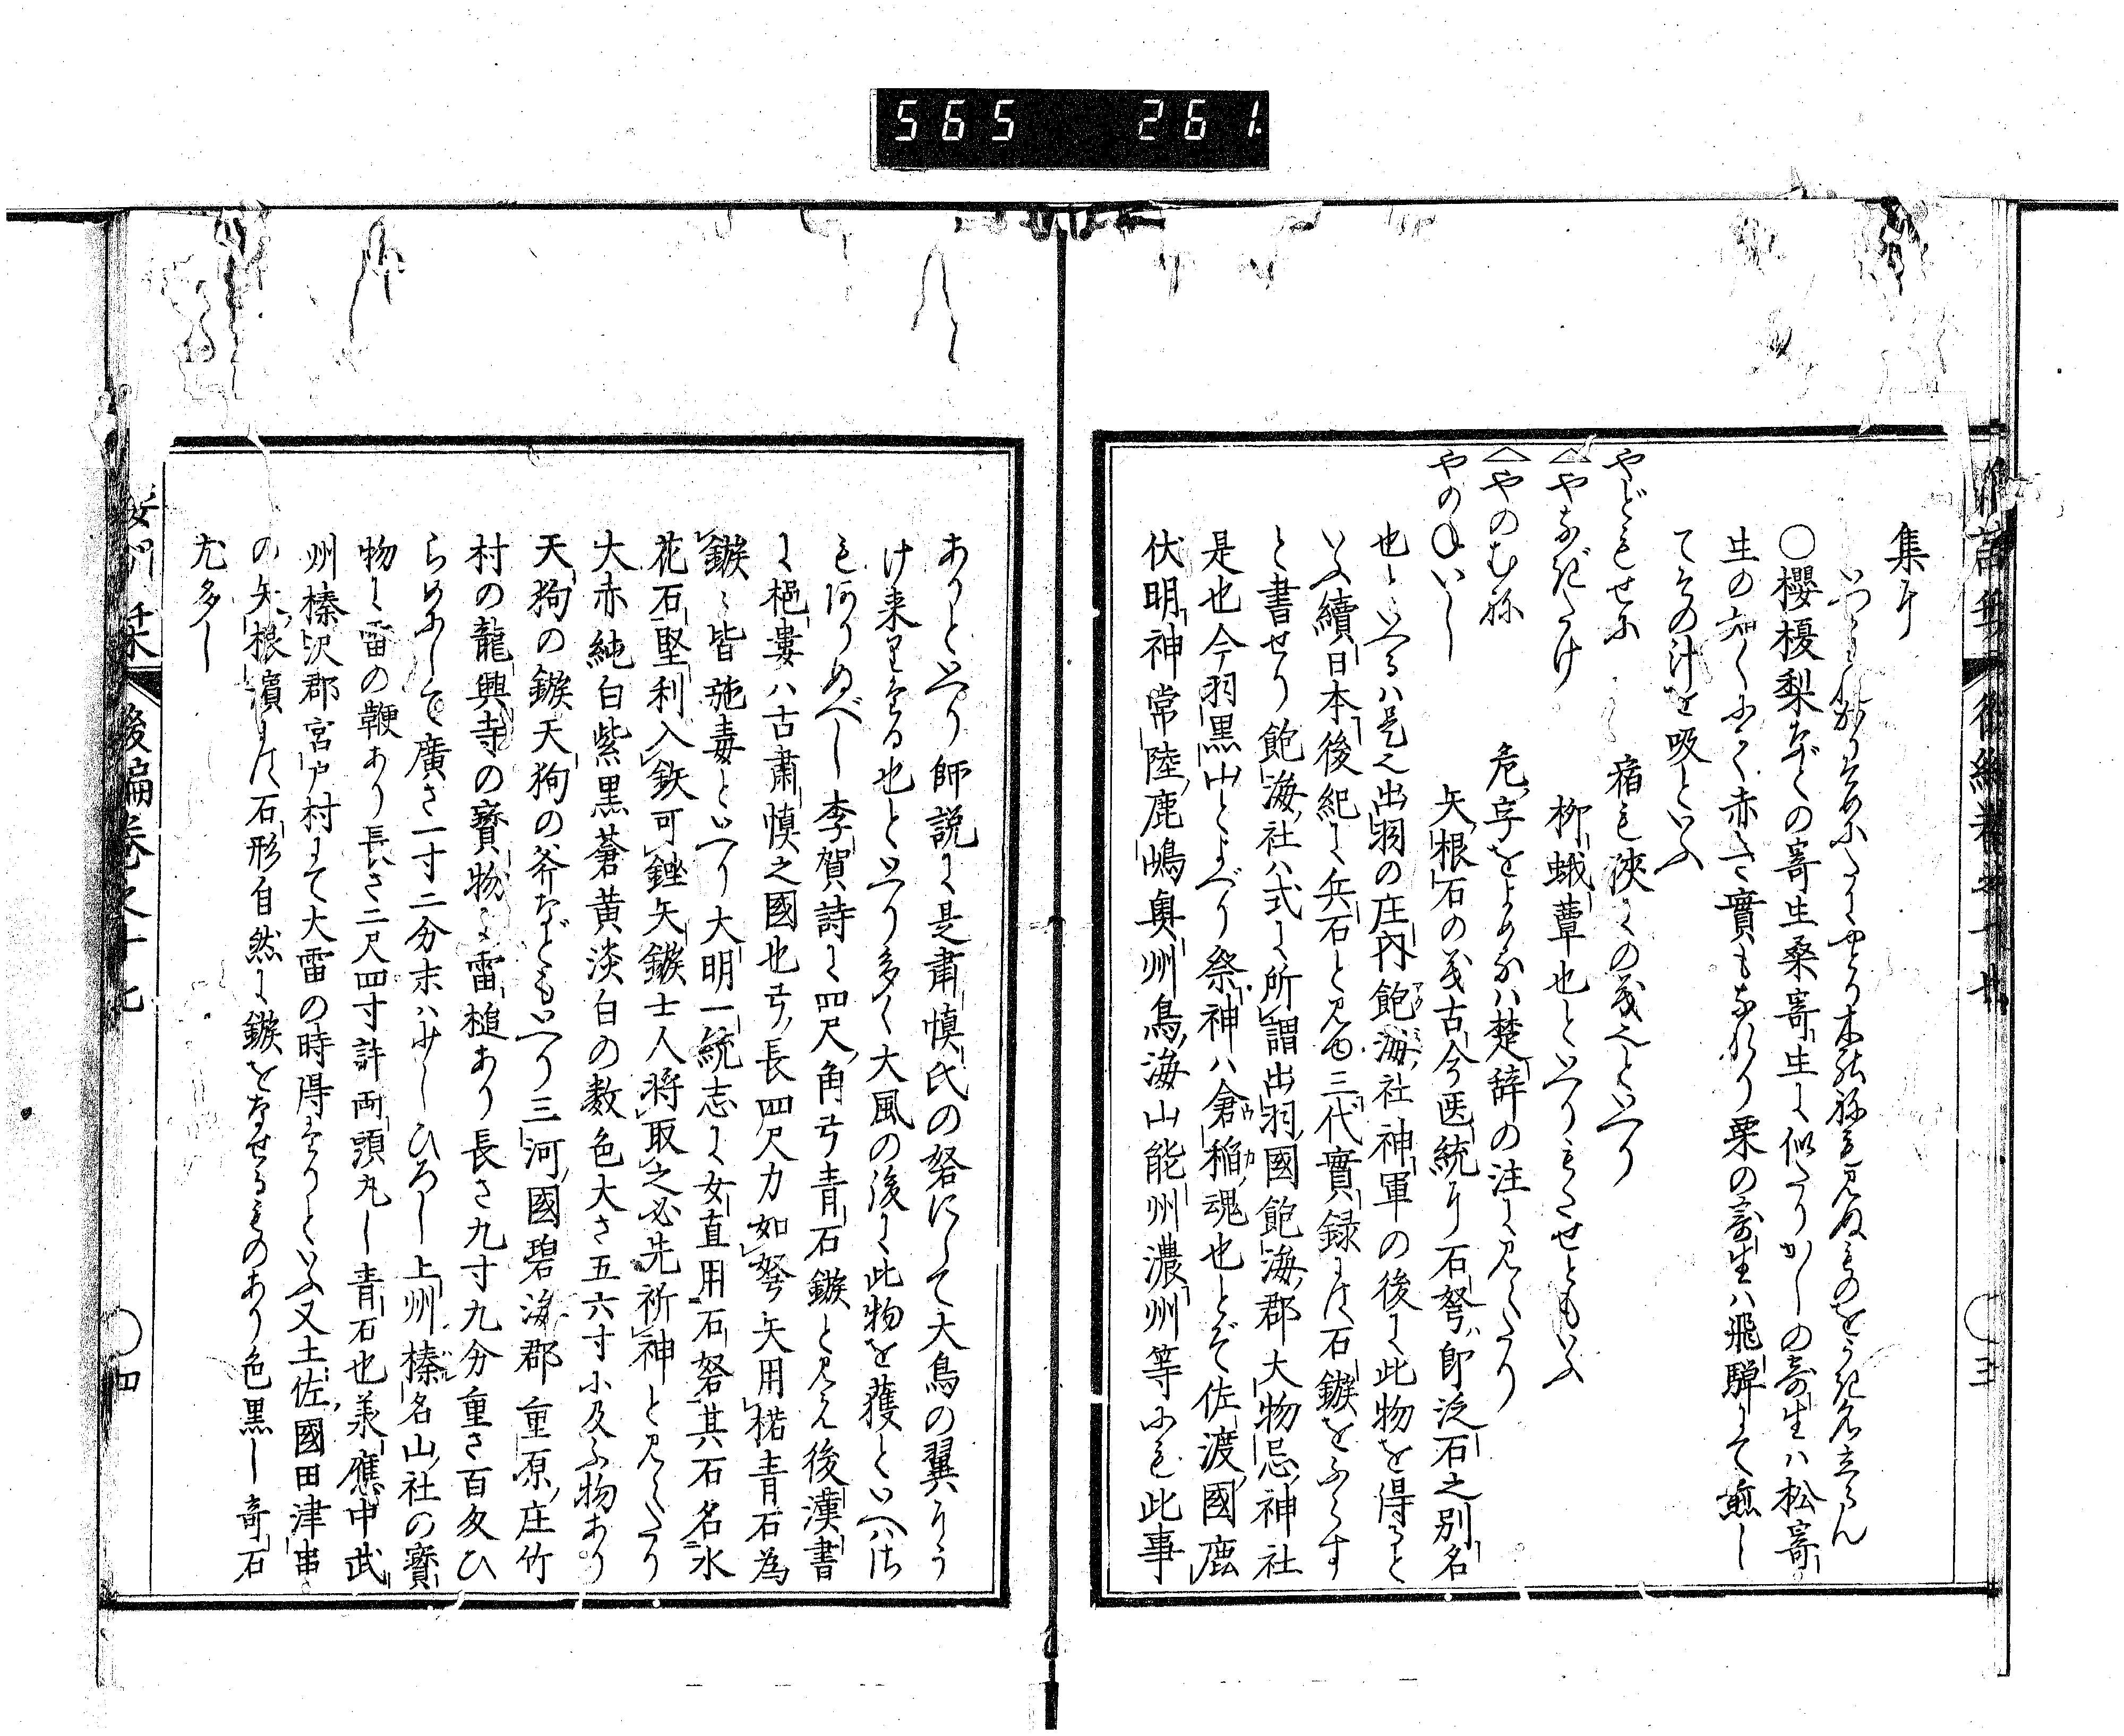 565 261
集に
いつしかりそめにたにやとり木乃紹を見ぬものをうき名立らん
〇櫻榎梨などの寄生桑寄生に似たりかしの寄生ハ松寄
生の如くふく赤き實もなれり栗の寄生ハ飛騨にて煎し
てその汁を吸といふ
やどもせに 宿も狹にの義也といへり
△やなぎたけ 柳蛾蕈也といへりもたせともいふ
△やのむね 危字をよめるハ楚辞の注に見えたり
やのねいし 矢根石の義古今医統に石砮ハ即泛石之別名
也といへるハ是也出羽の庄内飽海社神軍の後に此物を得ると
いふ續日本後紀に兵石と見ゆ三代實録には石鏃をふらす
と書せり飽海社ハ式に所謂出羽國飽海郡大物忌神社
是也今羽黒山とよべり祭神ハ倉稲魂也とぞ佐渡國鹿
伏明神常陸鹿嶋奥州鳥海山能州濃州等にも此事
ありといへり師説に是肅慎氏の砮にて大鳥の翼にう
け来りたる也といへり多く大風の後に此物を獲といへハさ
も有りぬべし李賀詩に四尺角弓青石鏃と見え後漢書
に挹婁ハ古肅慎之國也弓長四尺力如弩矢用楛青石為
鏃々皆施毒といへり大明一統志に女直用石砮其石名水
花石堅利入鉄可鏗矢鏃土人将取之必先祈神と見えたり
大赤純白紫黒蒼黄淡白の数色大さ五六寸小及ふ物あり
天狗の鏃天狗の斧などもいへり三河國碧海郡重原庄竹
村の龍興寺の寳物に雷槌あり長さ九寸九分重さ百友ひ
らめにして廣さ一寸二分末ハ少しひろし上州榛名山社の寳
物に雷の鞭あり長さ二尺四寸許両頭丸し青石也承應中武
州榛沢郡宮戸村にて大雷の時得たりといふ又土佐國田津串
の矢根濱には石形自然に鏃をなせるものあり色黒し奇石
尤多し
後編巻之十七
〇三
〇四